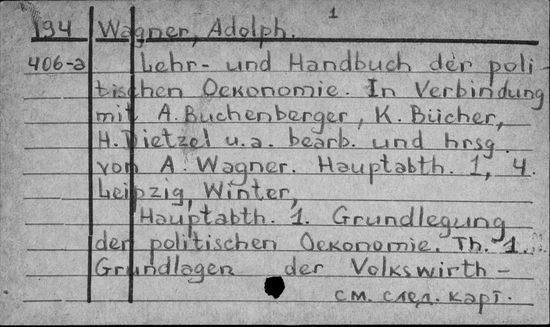 1
194 Wagner, Adolph.
406-a Lehr- und Handbuch der poli-
tischen Oekonomie. In Verbindung
mit A. Buchenberger, K. Bücher,
H. Dietzel u.a. bearb. und hrsg.
von A. Wagner. Hauptabth. 1, 4.
Leipzig, Winter,
Hauptabth. 1. Grundlegung
der politischen Oekonomie. Th. 1.
Grundlagen der Volkswirth-
см. след. карт.